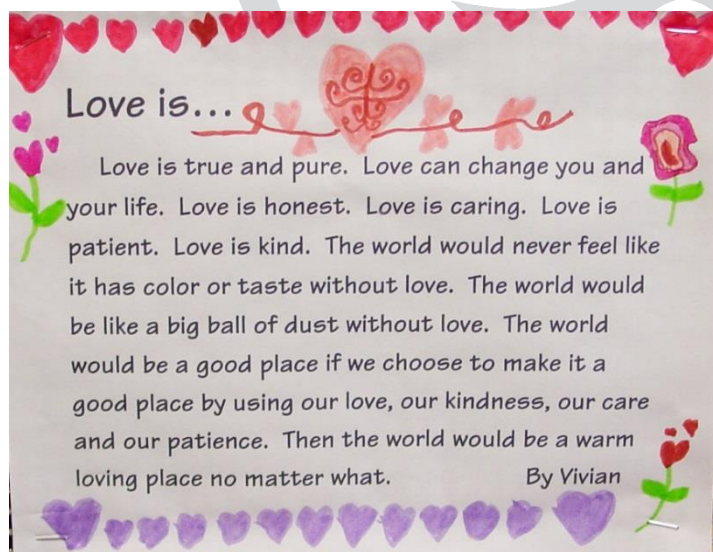 Love is...
Love is true and pure. Love can change you and
your life. Love is honest. Love is caring. Love is
patient. Love is kind. The world would never feel like
it has color or taste without love. The world would
be like a big ball of dust without love. The world
would be a good place if we choose to make it a
good place by using our love, our kindness, our care
and our patience. Then the world would be a warm
loving place no matter what. By Vivian